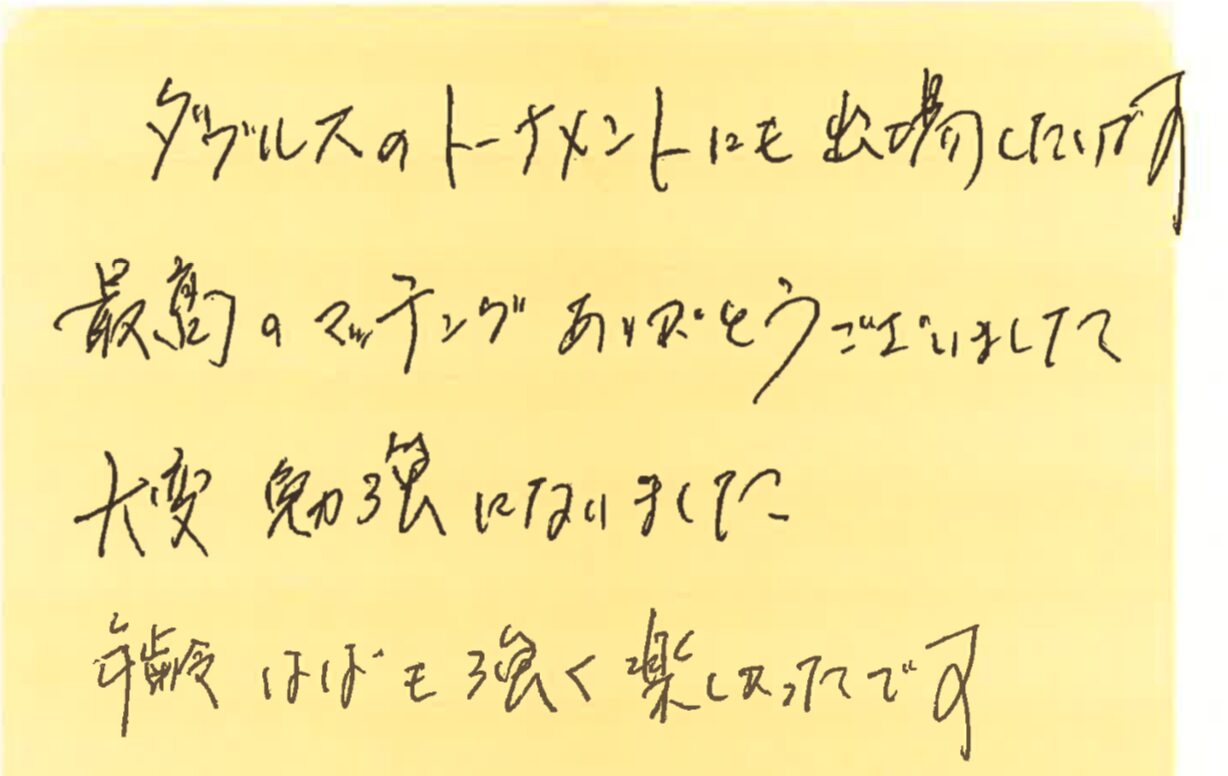 ダブルスのトーナメントにも出場したいです
最高のマッチングありがとうございました
大変 勉強になりました
年齢 はばも強く楽しかったです